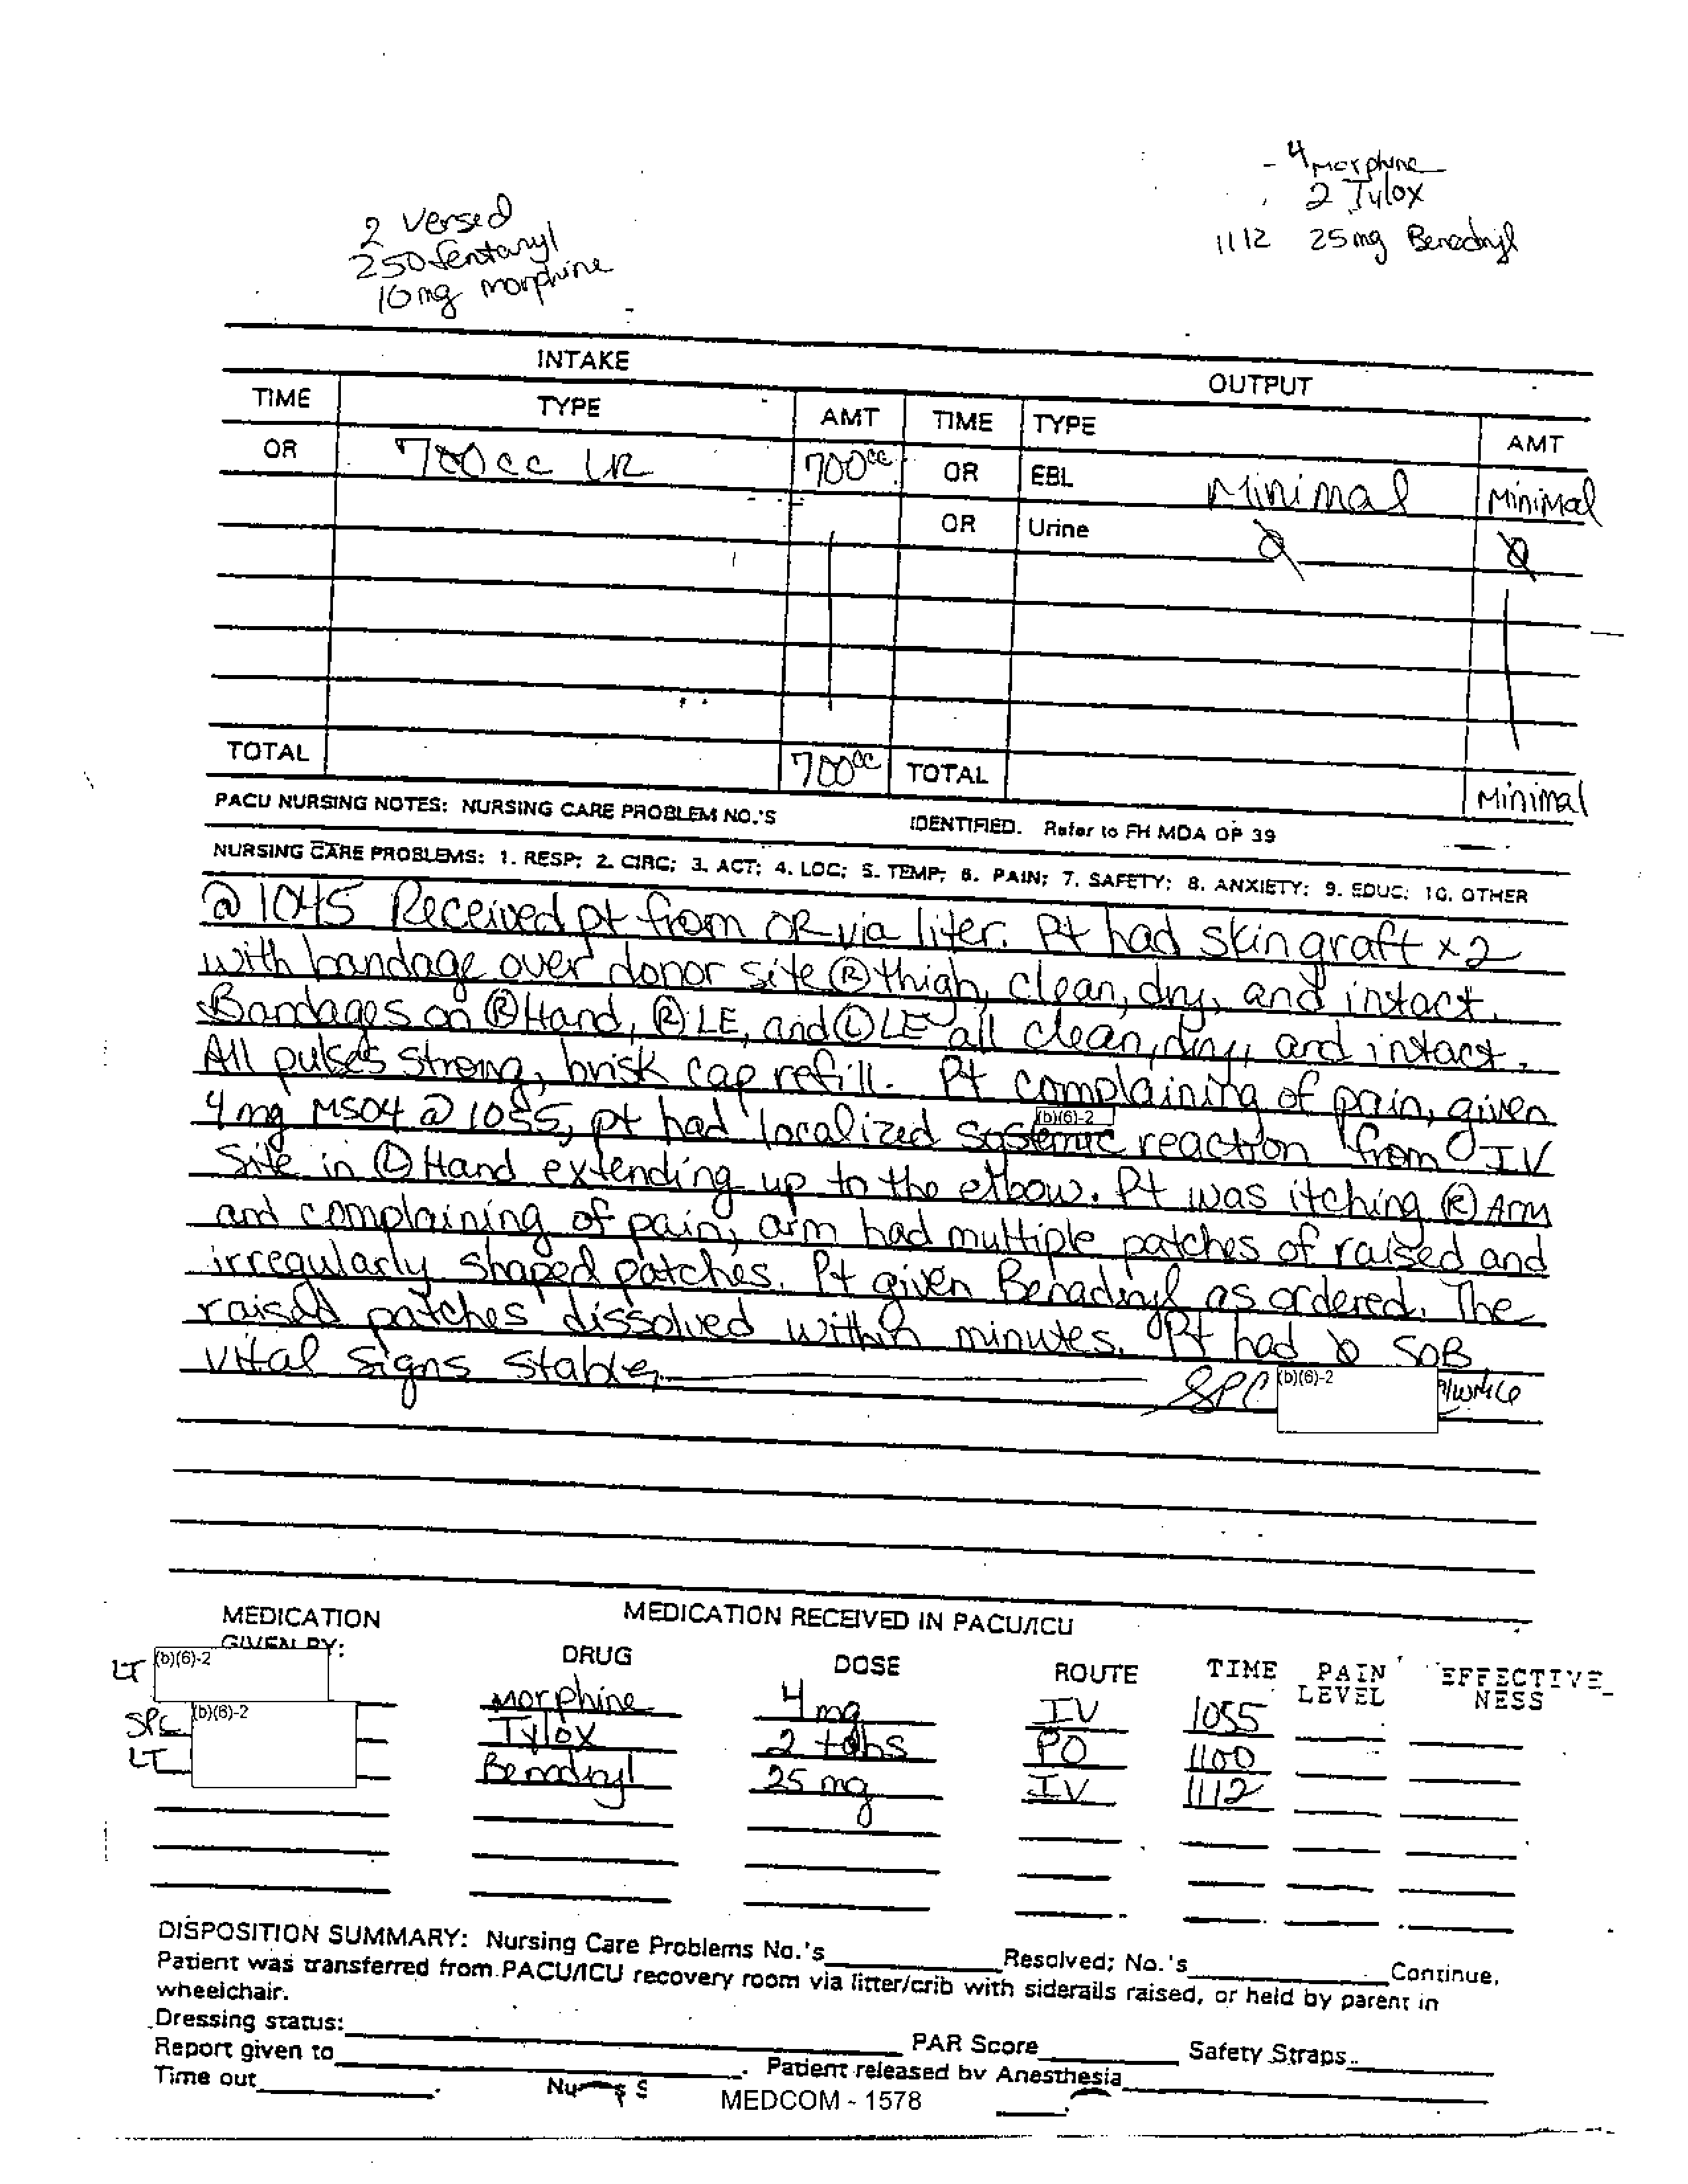 - 4 morphine
2 Tylox
1112 25mg Benadryl
2 Versed
250 fentanyl
10mg morphine
INTAKE OUTPUT
TIME TYPE AMT TIME TYPE AMT
OR 700cc LR 700cc OR EBL Minimal Minimal
OR Urine Ø Ø
TOTAL 700cc TOTAL Minimal
PACU NURSING NOTES: NURSING CARE PROBLEM NO.'S IDENTIFIED. Refer to FH MDA OP 39
NURSING CARE PROBLEMS: 1. RESP; 2. CIRC; 3. ACT; 4. LOC; 5. TEMP; 6. PAIN; 7. SAFETY; 8. ANXIETY; 9. EDUC; 10. OTHER
@ 1045 Received pt from OR via liter. Pt had skin graft x2
with bandage over donor site Ⓡ thigh, clean, dry, and intact.
Bandages on Ⓡ Hand, Ⓡ LE, and Ⓛ LE all clean, dry, and intact.
All pulses strong, brisk cap refill. Pt complaining of pain, given
(b)(6)-2
4 mg MSO4 @ 1055, pt had localized reaction from IV
Site in Ⓛ Hand extending up to the elbow. Pt was itching Ⓡ Arm
and complaining of pain, arm had multiple patches of raised and
irregularly shaped patches. Pt given Benadryl as ordered. The
raised patches dissolved within minutes. Pt had Ø SOB
vital signs stable.
SPC (b)(6)-2
MEDICATION GIVEN BY: MEDICATION RECEIVED IN PACU/ICU
DRUG DOSE ROUTE TIME PAIN LEVEL EFFECTIVENESS
LT (b)(6)-2 Morphine 4 mg IV 1055
SPC (b)(6)-2 Tylox 2 tabs PO 1100
LT Benadryl 25 mg IV 1112
DISPOSITION SUMMARY: Nursing Care Problems No.'s Resolved; No.'s Continue.
Patient was transferred from PACU/ICU recovery room via litter/crib with siderails raised, or held by parent in
wheelchair.
Dressing status: PAR Score Safety Straps
Report given to . Patient released by Anesthesia
Time out
MEDCOM - 1578